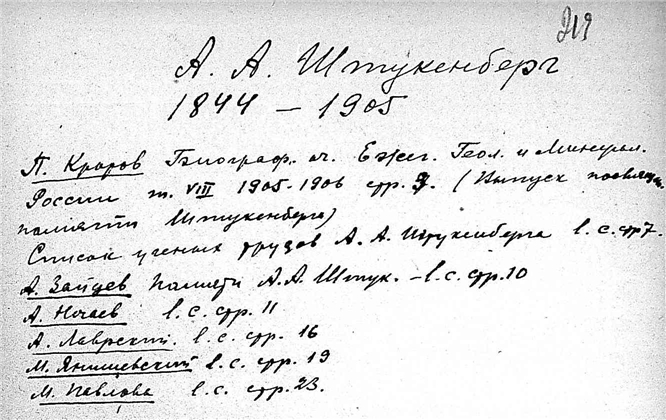 219
А. А. Штукенберг
1844 – 1905
П. Кротов Биограф. оч. Ежег. Геол. и Минерал.
России т. VIII 1905-1906 стр. 3. (Выпуск посвящ.
памяти Штукенберга)
Список ученых трудов А. А. Штукенберга l. c. стр 7.
А. Зайцев Памяти А. А. Штук. – l. c. стр. 10
А. Нечаев l. c. стр. 11
А. Лаврский. l. c. стр. 16
М. Янишевский l. c. стр. 19
М. Павлова l. c. стр. 23.